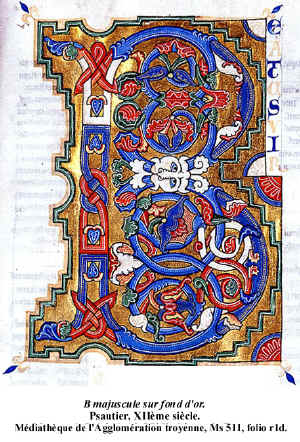 B
EATUSVIR
B majuscule sur fond d'or.
Psautier, XIIème siècle.
Médiathèque de l'Agglomération troyenne, Ms 511, folio r1d.